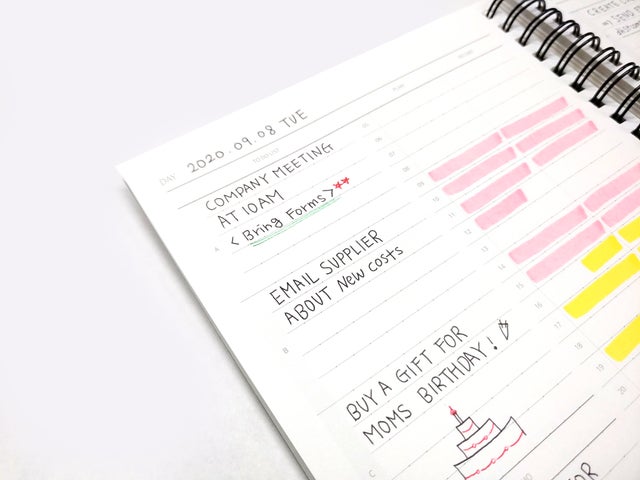 DAY 2020.09.08 TUE
TO DO LIST
COMPANY MEETING
AT 10AM
A < Bring Forms >
EMAIL SUPPLIER
ABOUT New costs
B
BUY A GIFT FOR
MOMS BIRTHDAY!
C
05
06
07
09
10
11
12
13
14
15
16
17
18
19
20